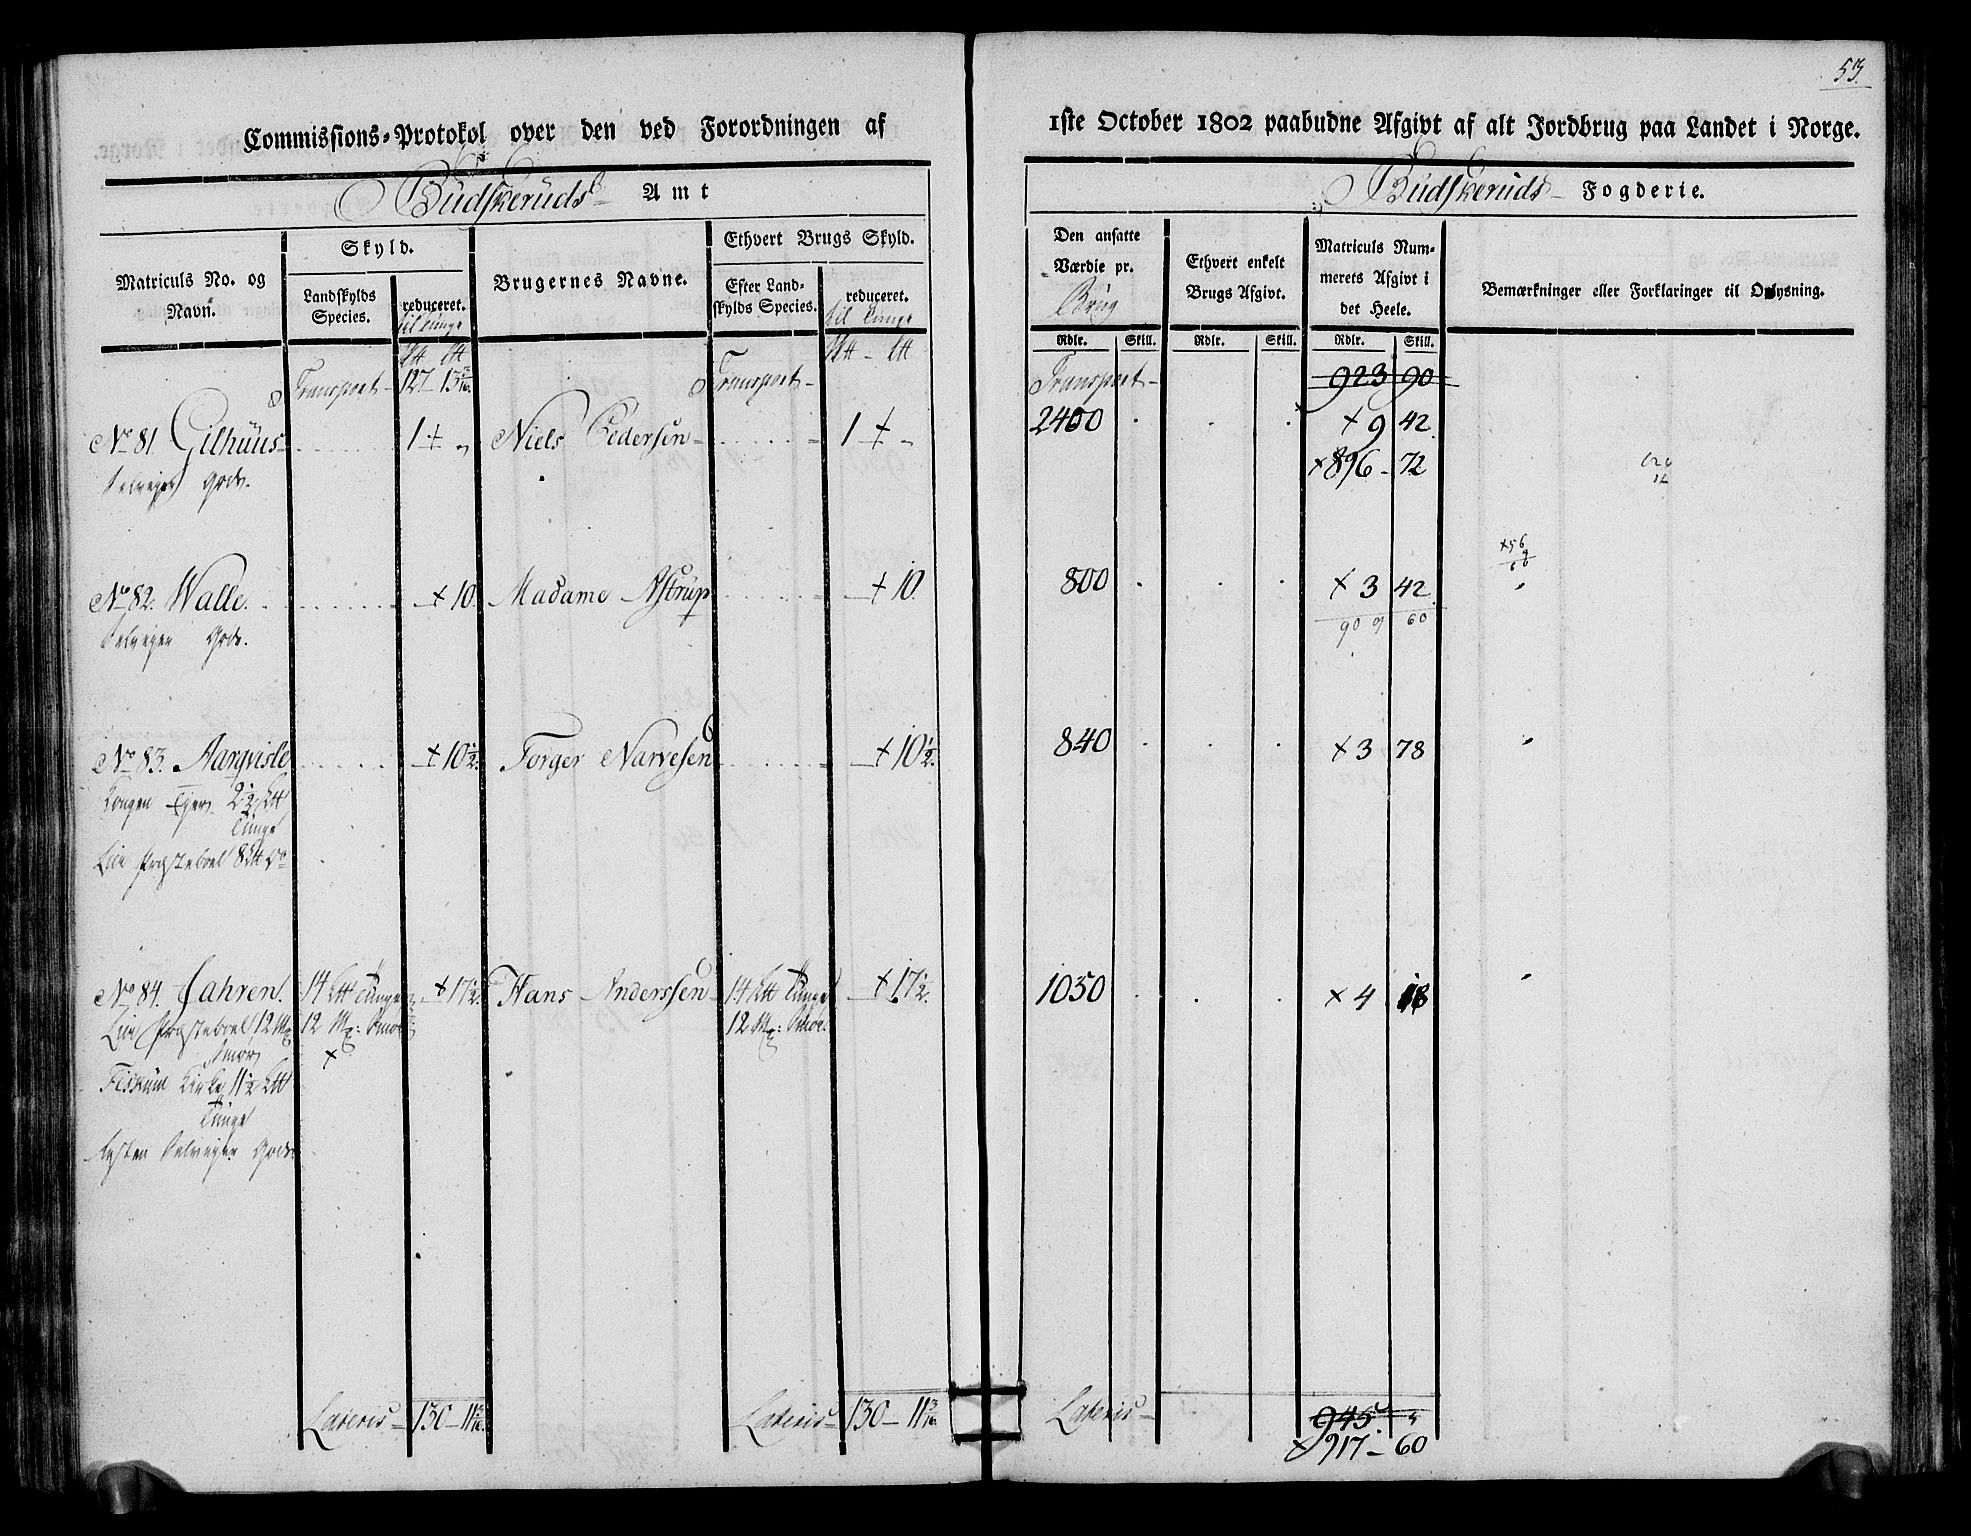 53.
Commissions-Protokol over den ved Forordningen af
1ste October 1802 paabudne Afgivt af alt Jordbrug paa Landet i Norge.
Budskeruds Amt
Budskeruds Fogderie.
Matriculs No. og Navn.
Skyld.
Landskylds Species.
reduceret. til Tunge
Brugernes Navne.
Ethvert Brugs Skyld.
Efter Landskylds Species.
reduceret. til Tunge
Den ansatte Værdie pr. Brug
Ethvert enkelt Brugs Afgivt.
Matriculs Nummerets Afgivt i det Heele.
Bemærkninger eller Forklaringer til Oplysning.
Rdlr. Skill. Rdlr. Skill. Rdlr. Skill.
Transport 127 - 13 3/16 Transport Transport 923 90
No 81. Gilhuus 1 Niels Pedersen 1 2400 9 42
Selveiger Gods. 896 - 72
No 82. Walle. 10. Madame Astrup 10. 800 3 42
Selveiger Gods. 90 60
No 83. Aarqvisle 10 1/2 Torger Narvesen 10 1/2. 840 3 78
Kongen Ejer 2 1/2 Ltt
Tunge
Lier Præsteboel 8 Ltt Do
No 84. Jahren. 14 Ltt Tunge 17 1/2 Hans Anderssen 14 Ltt Tunge 17 1/2. 1050 4 18
Lier Præsteboel 12 Mrk 12 Mrk: Smør 12 Mrk: Smør
Smør
Fiskum Kirke 11 1/2 Ltt
Tunge
Resten Selveiger Gods.
Lateris 130 - 11 3/16 Lateris 130 - 11 3/16 Lateris 945
917 - 60